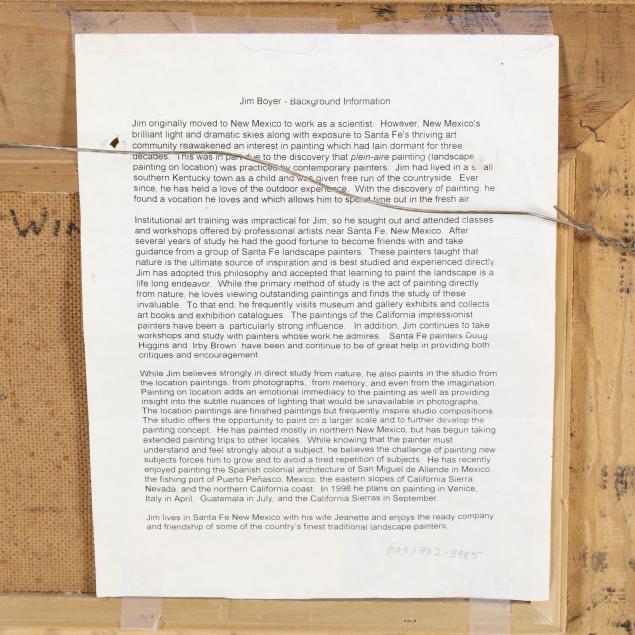 Jim Boyer - Background Information
Jim originally moved to New Mexico to work as a scientist. However, New Mexico's
brilliant light and dramatic skies along with exposure to Santa Fe's thriving art
community reawakened an interest in painting which had lain dormant for three
decades. This was in part due to the discovery that plein-aire painting (landscape
painting on location) was practiced by contemporary painters. Jim had lived in a small
southern Kentucky town as a child and was given free run of the countryside. Ever
since, he has held a love of the outdoor experience. With the discovery of painting, he
found a vocation he loves and which allows him to spend time out in the fresh air.
Institutional art training was impractical for Jim, so he sought out and attended classes
and workshops offered by professional artists near Santa Fe, New Mexico. After
several years of study he had the good fortune to become friends with and take
guidance from a group of Santa Fe landscape painters. These painters taught that
nature is the ultimate source of inspiration and is best studied and experienced directly.
Jim has adopted this philosophy and accepted that learning to paint the landscape is a
life long endeavor. While the primary method of study is the act of painting directly
from nature, he loves viewing outstanding paintings and finds the study of these
invaluable. To that end, he frequently visits museum and gallery exhibits and collects
art books and exhibition catalogues. The paintings of the California impressionist
painters have been a particularly strong influence. In addition, Jim continues to take
workshops and study with painters whose work he admires. Santa Fe painters Doug
Higgins and Irby Brown have been and continue to be of great help in providing both
critiques and encouragement.
While Jim believes strongly in direct study from nature, he also paints in the studio from
the location paintings, from photographs, from memory, and even from the imagination.
Painting on location adds an emotional immediacy to the painting as well as providing
insight into the subtle nuances of lighting that would be unavailable in photographs.
The location paintings are finished paintings but frequently inspire studio compositions.
The studio offers the opportunity to paint on a larger scale and to further develop the
painting concept. He has painted mostly in northern New Mexico, but has begun taking
extended painting trips to other locales. While knowing that the painter must
understand and feel strongly about a subject, he believes the challenge of painting new
subjects forces him to grow and to avoid a tired repetition of subjects. He has recently
enjoyed painting the Spanish colonial architecture of San Miguel de Allende in Mexico,
the fishing port of Puerto Peñasco, Mexico, the eastern slopes of California Sierra
Nevada, and the northern California coast. In 1998 he plans on painting in Venice,
Italy in April, Guatemala in July, and the California Sierras in September.
Jim lives in Santa Fe New Mexico with his wife Jeanette and enjoys the ready company
and friendship of some of the country's finest traditional landscape painters.
(505) 982-3985